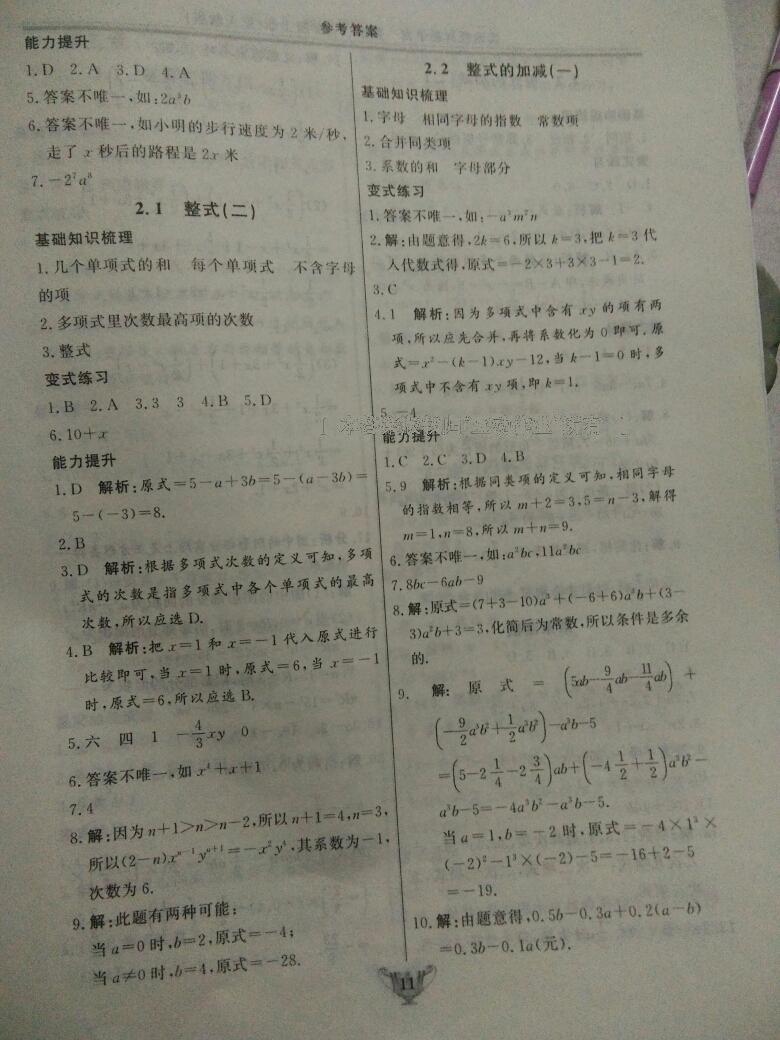 参考答案
能力提升
1.D 2.A 3.D 4.A
5.答案不唯一,如:2a³b
6.答案不唯一,如小明的步行速度为2米/秒,
走了x秒后的路程是2x米
7.-2⁷a⁸
2.1 整式(二)
基础知识梳理
1.几个单项式的和 每个单项式 不含字母
的项
2.多项式里次数最高项的次数
3.整式
变式练习
1.B 2.A 3.3 3 4.B 5.D
6.10+x
能力提升
1.D 解析:原式=5-a+3b=5-(a-3b)=
5-(-3)=8.
2.B
3.D 解析:根据多项式次数的定义可知,多项
式的次数是指多项式中各个单项式的最高
次数,所以应选D.
4.B 解析:把x=1和x=-1代入原式进行
比较即可,当x=1时,原式=6,当x=-1
时,原式=6,所以应选B.
5.六 四 1 -4/3xy 0
6.答案不唯一,如x⁴+x+1
7.4
8.解:因为n+1>n>n-2,所以n+1=4,n=3,
所以(2-n)xⁿ⁻¹yⁿ⁺¹=-x²y⁴,其系数为-1,
次数为6.
9.解:此题有两种可能:
当a=0时,b=2,原式=-4;
当a≠0时,b=4,原式=-28.
2.2 整式的加减(一)
基础知识梳理
1.字母 相同字母的指数 常数项
2.合并同类项
3.系数的和 字母部分
变式练习
1.答案不唯一,如:-a³m²n
2.解:由题意得,2k=6,所以k=3,把k=3代
入代数式得,原式=-2×3+3×3-1=2.
3.C
4.1 解析:因为多项式中含有xy的项有两
项,所以应先合并,再将系数化为0即可.原
式=x²-(k-1)xy-12,当k-1=0时,多
项式中不含有xy项,即k=1.
5.-4
能力提升
1.C 2.C 3.D 4.B
5.9 解析:根据同类项的定义可知,相同字母
的指数相等,所以m+2=3,5=n-3,解得
m=1,n=8,所以m+n=9.
6.答案不唯一,如:a²bc,11a²bc
7.8bc-6ab-9
8.解:原式=(7+3-10)a³+(-6+6)a³b+(3-
3)a²b+3=3,化简后为常数,所以条件是多余
的.
9. 解: 原 式 = (5ab-9/4ab-11/4ab) +
(-9/2a³b²+1/2a³b²)-a³b-5
=(5-2 1/4-2 3/4)ab+(-4 1/2+1/2)a³b²-
a³b-5=-4a³b²-a³b-5.
当a=1,b=-2时,原式=-4×1³×
(-2)²-1³×(-2)-5=-16+2-5
=-19.
10.解:由题意得,0.5b-0.3a+0.2(a-b)
=0.3b-0.1a(元).
11